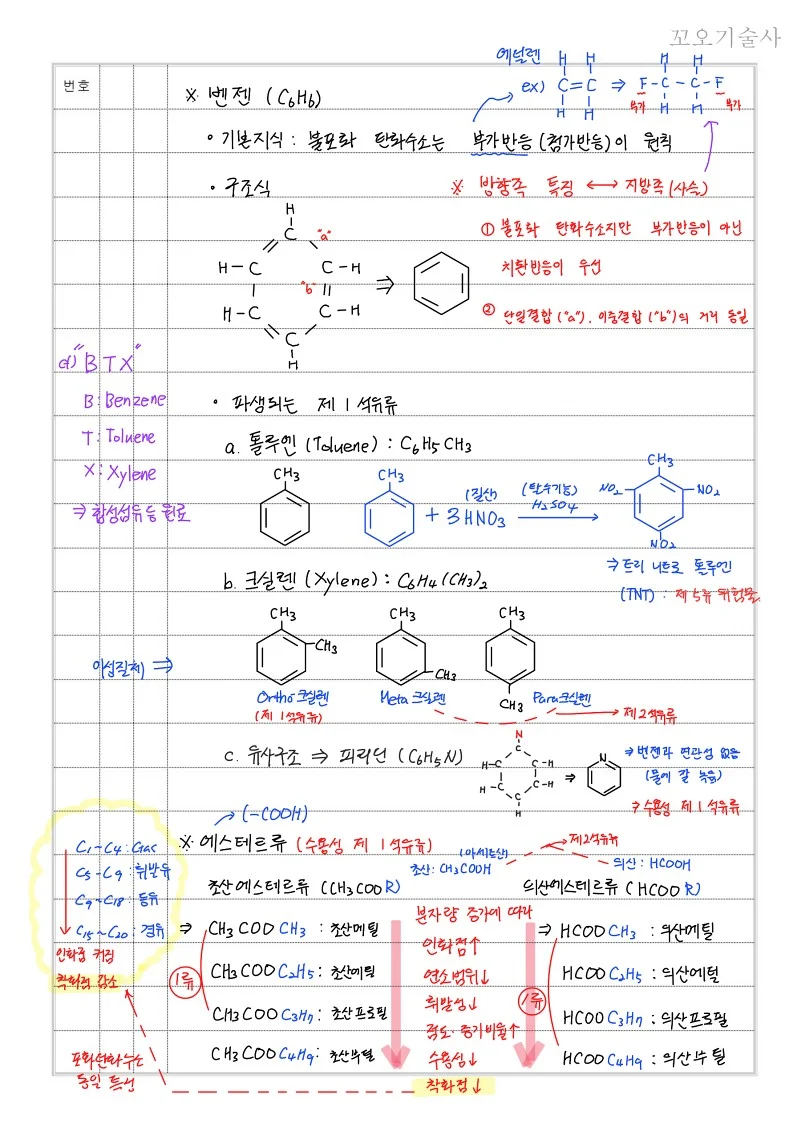 꼬오기술사
번호
※ 벤젠 (C6H6)
에틸렌
ex)
H H
C=C
H H
⇒
H H
F-C-C-F
H H
부가 부가
• 기본지식 : 불포화 탄화수소는 부가반응(첨가반응)이 원칙
• 구조식
※ 방향족 특징 ↔ 지방족(사슬)
① 불포화 탄화수소지만 부가반응이 아닌
치환반응이 우선
② 단일결합("a"), 이중결합("b")의 거리 동일
H
C "a"
H-C C-H
"b"
H-C C-H
C
H
⇒
"BTX"
B: Benzene
T: Toluene
X: Xylene
⇒ 합성섬유 등 원료
• 파생되는 제1석유류
a. 톨루엔 (Toluene) : C6H5CH3
CH3
CH3
+ 3HNO3
(질산)
(탈수기능)
H2SO4
CH3
NO2 NO2
NO2
⇒ 트리 니트로 톨루엔
(TNT) : 제5류 위험물
b. 크실렌 (Xylene) : C6H4(CH3)2
이성질체) ⇒
CH3
CH3
Ortho 크실렌
(제1석유류)
CH3
CH3
Meta 크실렌
CH3
CH3
Para 크실렌
→ 제2석유류
c. 유사구조 ⇒ 피리딘 (C6H5N)
N
C
H-C C-H
H-C C-H
C
H
⇒
N
⇒ 벤젠과 연관성 없음
(물에 잘 녹음)
⇒ 수용성 제1석유류
→ (-COOH)
※ 에스테르류 (수용성 제1석유류)
(아세트산)
초산: CH3COOH
제2석유류
의산: HCOOH
C1~C4 : Gas
C5-C9 : 휘발유
C9~C18 : 등유
C15~C20 : 경유
인화점 커짐
착화점 감소
포화탄화수소
동일 특성
초산에스테르류 (CH3COO R)
⇒ CH3COO CH3 : 초산메틸
CH3COO C2H5 : 초산에틸
CH3COO C3H7 : 초산프로필
CH3COO C4H9 : 초산부틸
1류
분자량 증가에 따라
인화점↑
연소범위↓
휘발성↓
점도·증기비율↑
수용성↓
착화점↓
의산에스테르류 (HCOO R)
⇒ HCOO CH3 : 의산메틸
HCOO C2H5 : 의산에틸
HCOO C3H7 : 의산프로필
HCOO C4H9 : 의산부틸
1류